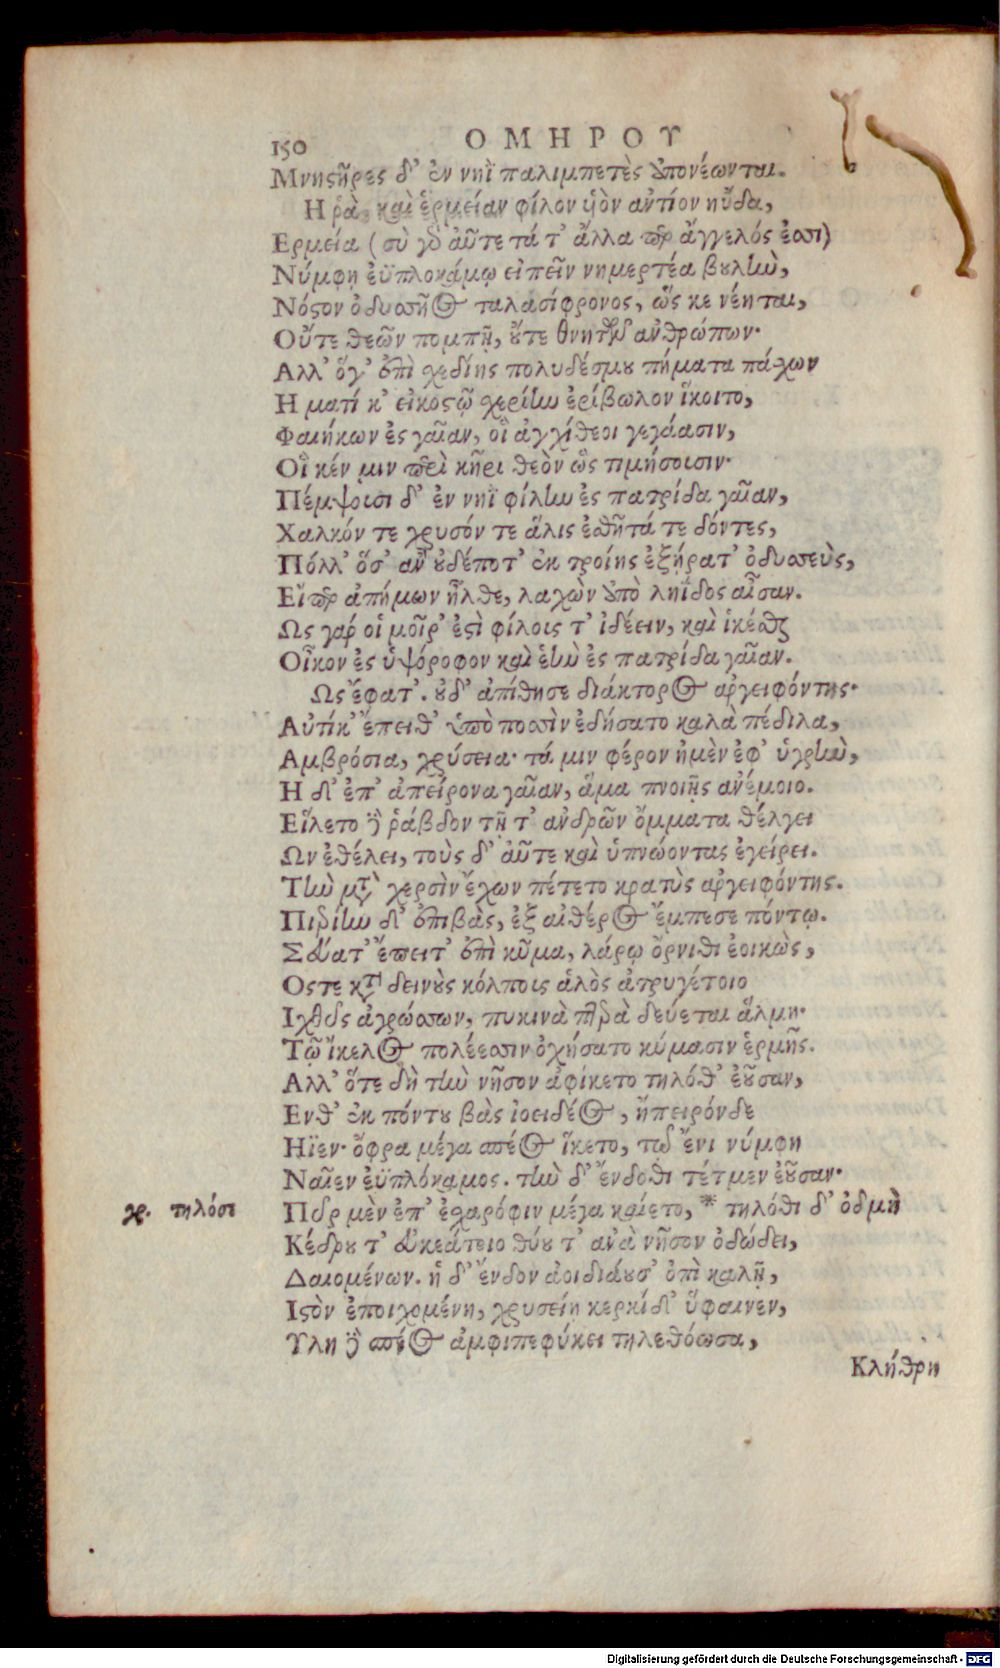 150 ΟΜΗΡΟΥ
Μνηστῆρες δ' ἐν νηῒ παλιμπετὲς ἀπονέωνται.
Η ῥὰ, καὶ ἑρμείαν φίλον ὑὸν ἀντίον ηὔδα,
Ερμεία (σὺ γὰρ αὖτε τά τ' ἄλλα περ ἄγγελός ἐσσι)
Νύμφῃ ἐϋπλοκάμῳ εἰπεῖν νημερτέα βουλὴν,
Νόστον ὀδυσσῆος ταλασίφρονος, ὥς κε νέηται,
Οὔτε θεῶν πομπῇ, οὔτε θνητῶν ἀνθρώπων·
Αλλ' ὅγ' ἐπὶ σχεδίης πολυδέσμου πήματα πάσχων
Η ματί κ' εἰκοστῷ σχερίην ἐρίβωλον ἵκοιτο,
Φαιήκων ἐς γαῖαν, οἳ ἀγχίθεοι γεγάασιν,
Οἵ κέν μιν περὶ κῆρι θεὸν ὣς τιμήσουσιν·
Πέμψουσι δ' ἐν νηῒ φίλην ἐς πατρίδα γαῖαν,
Χαλκόν τε χρυσόν τε ἅλις ἐσθῆτά τε δόντες,
Πόλλ' ὅσ' ἂν οὐδέποτ' ἐκ τροίης ἐξήρατ' ὀδυσσεὺς,
Εἴπερ ἀπήμων ἦλθε, λαχὼν ἀπὸ ληΐδος αἶσαν.
Ως γάρ οἱ μοῖρ' ἐστὶ φίλους τ' ἰδέειν, καὶ ἱκέσθαι
Οἶκον ἐς ὑψόροφον καὶ ἑὴν ἐς πατρίδα γαῖαν.
Ως ἔφατ'. οὐδ' ἀπίθησε διάκτορος ἀργειφόντης·
Αὐτίκ' ἔπειθ' ὑπὸ ποσσὶν ἐδήσατο καλὰ πέδιλα,
Αμβρόσια, χρύσεια· τά μιν φέρον ἠμὲν ἐφ' ὑγρὴν,
Η δ' ἐπ' ἀπείρονα γαῖαν, ἅμα πνοιῇς ἀνέμοιο.
Εἵλετο δὲ ῥάβδον τῇ τ' ἀνδρῶν ὄμματα θέλγει
Ων ἐθέλει, τοὺς δ' αὖτε καὶ ὑπνώοντας ἐγείρει.
Τὴν μετὰ χερσὶν ἔχων πέτετο κρατὺς ἀργειφόντης.
Πιερίην δ' ἐπιβὰς, ἐξ αἰθέρος ἔμπεσε πόντῳ.
Σεύατ' ἔπειτ' ἐπὶ κῦμα, λάρῳ ὄρνιθι ἐοικὼς,
Οστε κατὰ δεινοὺς κόλπους ἁλὸς ἀτρυγέτοιο
Ιχθῦς ἀγρώσσων, πυκινὰ πτερὰ δεύεται ἅλμῃ·
Τῷ ἴκελος πολέεσσιν ὀχήσατο κύμασιν ἑρμῆς.
Αλλ' ὅτε δὴ τὴν νῆσον ἀφίκετο τηλόθ' ἐοῦσαν,
Ενθ' ἐκ πόντου βὰς ἰοειδέος, ἤπειρόνδε
Ηϊεν· ὄφρα μέγα σπέος ἵκετο, τῷ ἔνι νύμφη
Ναῖεν ἐϋπλόκαμος. τὴν δ' ἔνδοθι τέτμεν ἐοῦσαν·
γρ. τηλόσε Πῦρ μὲν ἐπ' ἐσχαρόφιν μέγα καίετο, * τηλόθι δ' ὀδμὴ
Κέδρου τ' εὐκεάτοιο θύου τ' ἀνὰ νῆσον ὀδώδει,
Δαιομένων. ἡ δ' ἔνδον ἀοιδιάουσ' ὀπὶ καλῇ,
Ιστὸν ἐποιχομένη, χρυσείῃ κερκίδ' ὕφαινεν,
Υλη δὲ σπέος ἀμφιπεφύκει τηλεθόωσα,
Κλήθρη
Digitalisierung gefördert durch die Deutsche Forschungsgemeinschaft - DFG